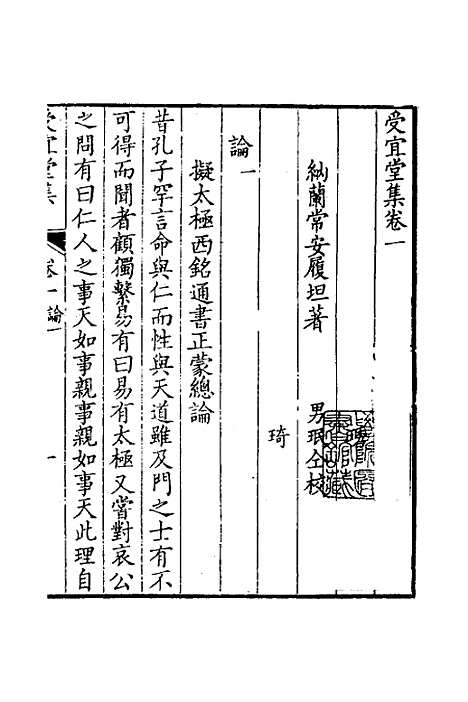 受宜堂集卷一
納蘭常安履坦著 男珉仝校
琦
論一
擬太極西銘通書正蒙總論
昔孔子罕言命與仁而性與天道雖及門之士有不
可得而聞者顧獨繫易有曰易有太極又嘗對哀公
之問有曰仁人之事天如事親事親如事天此理自
受宜堂集 卷一 論一 一